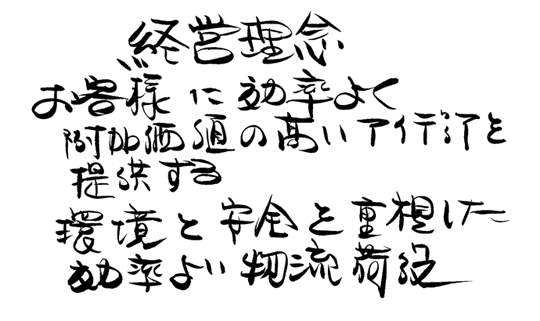 経営理念
お客様に効率よく
附加価値の高いアイデアを
提供する
環境と安全を重視した
効率よい物流荷役